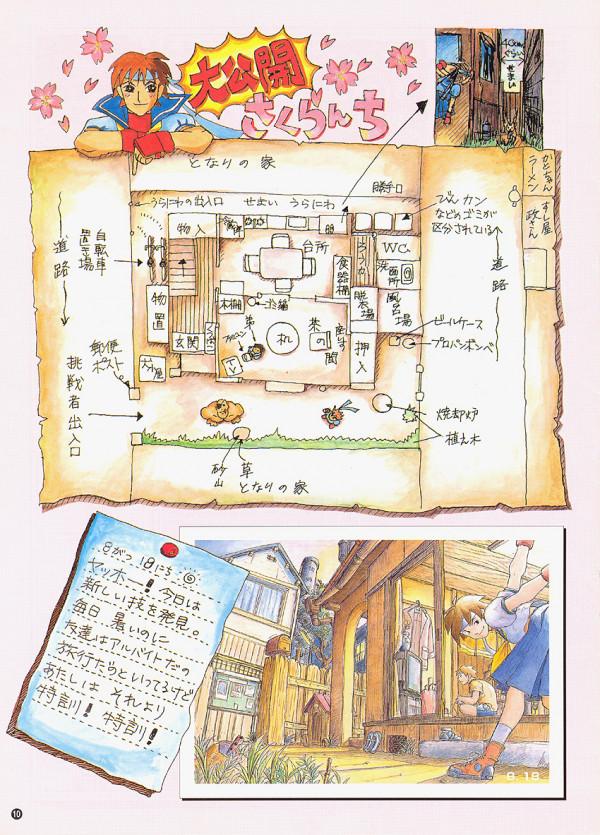 大公開
さくらんち
40cm
ぐらい
せまい
となりの家
勝手口
うらにわの出入口 せまい うらにわ
道路
自転車
置き場
物入
台所
食器棚
びん カン
などのゴミが
区分されている
W.C.
洗面所
脱衣場
風呂場
押入
道路
かとちゃん
ラーメン
すし屋
政さん
ビールケース
プロパンボンベ
物置
玄関
本棚
ゴミ箱
弟
ファミコン
TV
机
茶の間
犬小屋
郵便
ポスト
挑戦者出入口
焼却炉
植え木
砂山
草
となりの家
8がつ18にち
ヤッホー!今日は
新しい技を発見。
毎日 暑いのに
友達はアルバイトだの
旅行だのといってるけど
あたしは それより
特訓! 特訓!
8.18
10